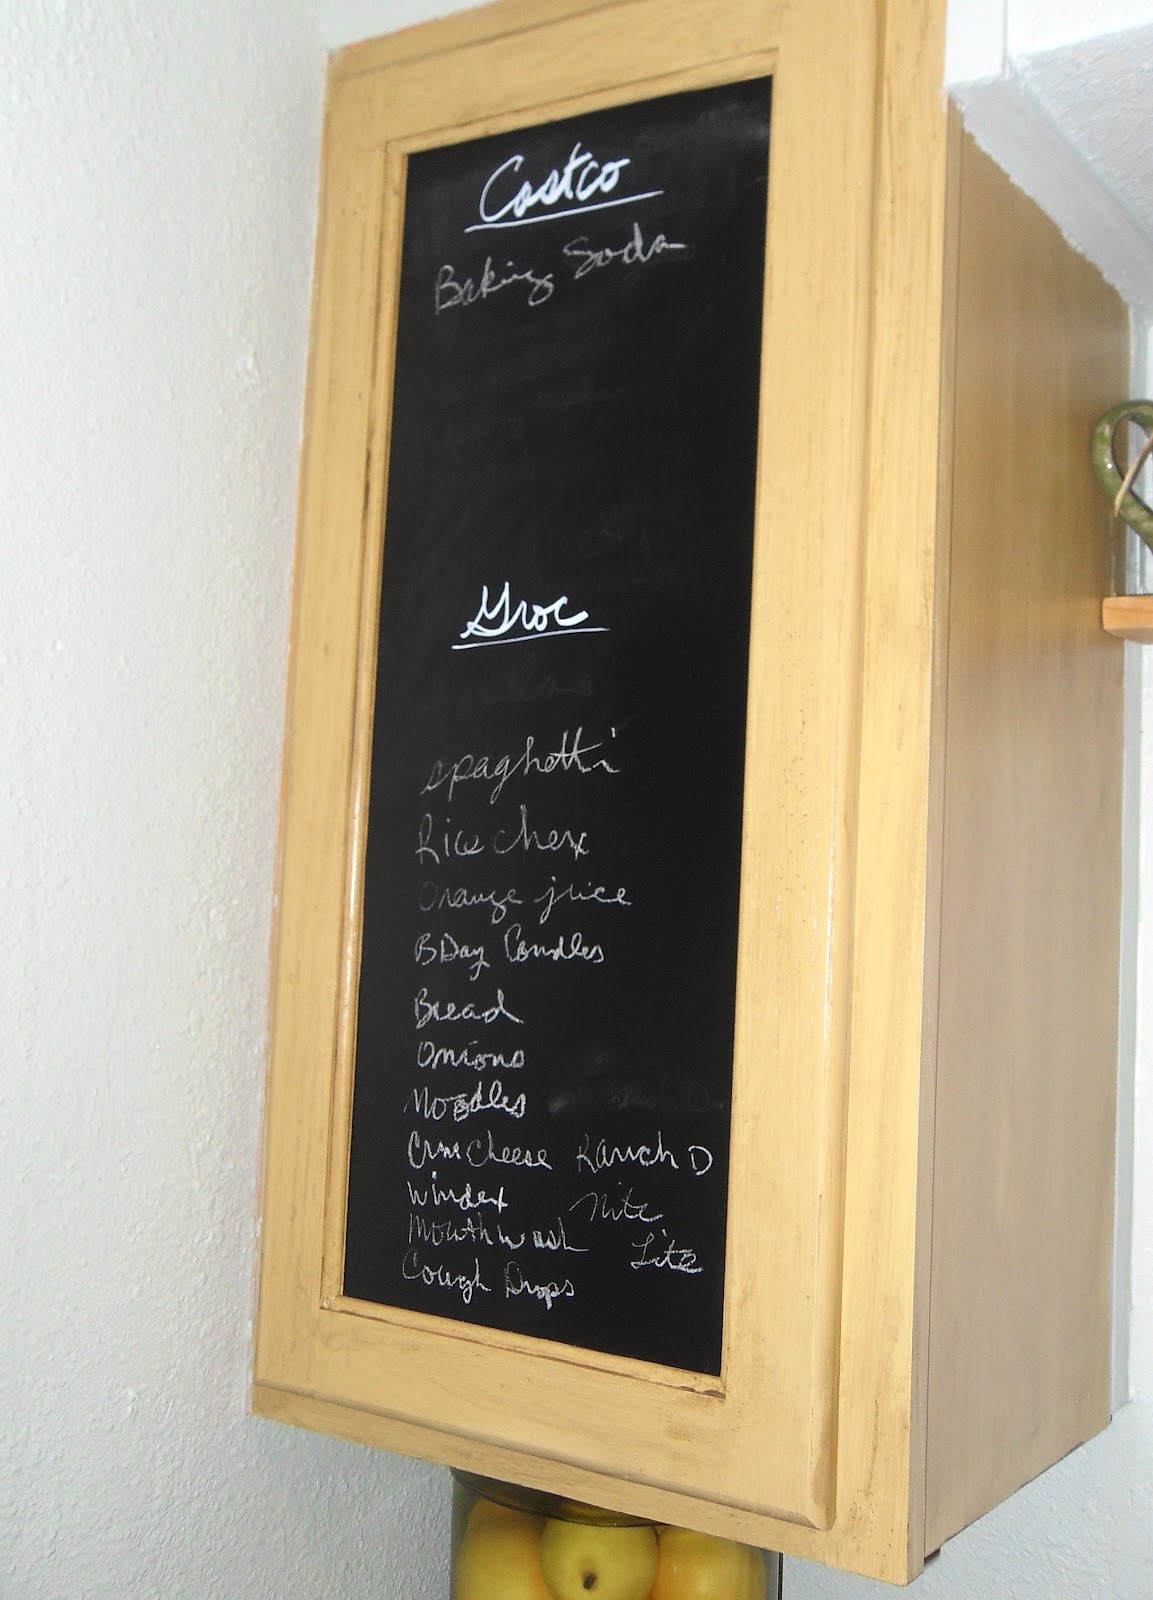 Costco
Baking Soda
Groc
spaghetti
Rice chex
Orange juice
BDay Candles
Bread
Onions
Noodles
Crm Cheese Ranch D
Windex Nite
Mouthwash Lite
Cough Drops